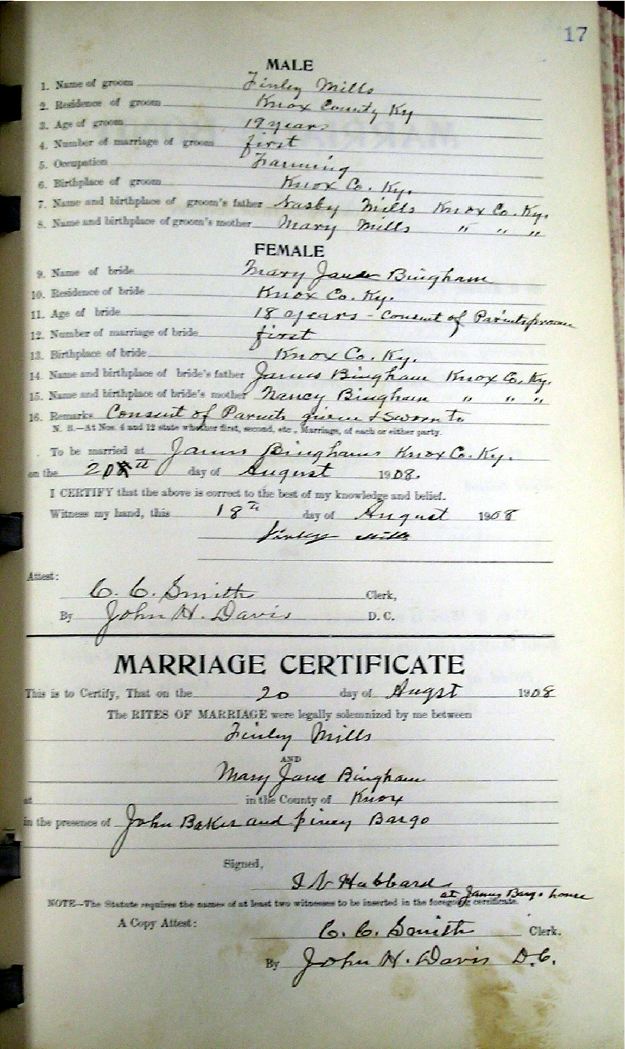 17
MALE
1. Name of groom Finley Mills
2. Residence of groom Knox County Ky
3. Age of groom 19 years
4. Number of marriage of groom first
5. Occupation Farming
6. Birthplace of groom Knox Co. Ky.
7. Name and birthplace of groom's father Nasby Mills Knox Co. Ky.
8. Name and birthplace of groom's mother Mary Mills " " "
FEMALE
9. Name of bride Mary Jane Bingham
10. Residence of bride Knox Co. Ky.
11. Age of bride 18 years - Consent of Parents
12. Number of marriage of bride first
13. Birthplace of bride Knox Co. Ky.
14. Name and birthplace of bride's father James Bingham Knox Co. Ky.
15. Name and birthplace of bride's mother Nancy Bingham " " "
16. Remarks Consent of Parents given & Sworn to
N. B.—At Nos. 4 and 12 state whether first, second, etc., Marriage, of each or either party.
To be married at James Binghams Knox Co. Ky.
on the 20th day of August 1908.
I CERTIFY that the above is correct to the best of my knowledge and belief.
Witness my hand, this 18th day of August 1908
Finley Mills
Attest:
C. C. Smith Clerk,
By John H. Davis D. C.
MARRIAGE CERTIFICATE
This is to Certify, That on the 20 day of Augst 1908
The RITES OF MARRIAGE were legally solemnized by me between
Finley Mills
AND
Mary Jane Bingham
at in the County of Knox
in the presence of John Baker and piney Bargo
Signed,
Hubbard
at James Bargo house
NOTE—The Statute requires the names of at least two witnesses to be inserted in the foregoing certificate.
A Copy Attest: C. C. Smith Clerk.
By John H. Davis D.C.